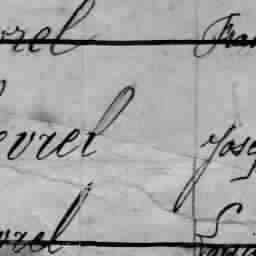 vrel Fran
evrel Jose
vrel Loui